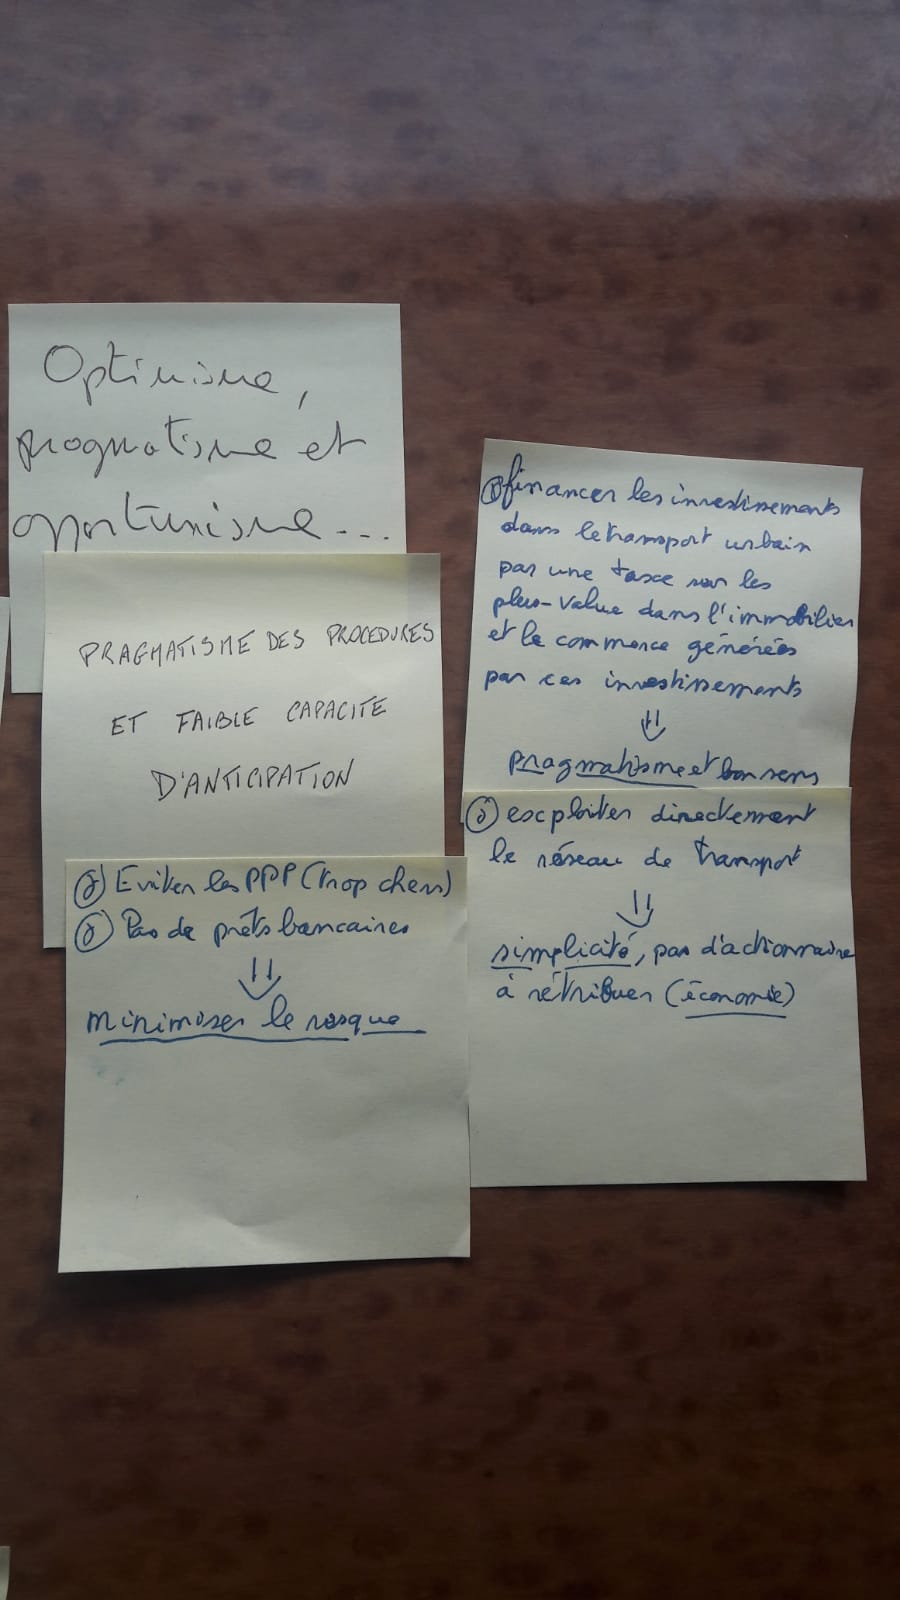 Optimisme,
pragmatisme et
opportunisme...
PRAGMATISME DES PROCEDURES
ET FAIBLE CAPACITE
D'ANTICIPATION
Eviter les PPP (trop chers)
Pas de prêts bancaires
⇓
minimiser le risque
financer les investissements
dans le transport urbain
par une taxe sur les
plus-value dans l'immobilier
et le commerce générées
par ces investissements
⇓
pragmatisme et bon sens
exploiter directement
le réseau de transport
⇓
simplicité, pas d'actionnaire
à rétribuer (économie)